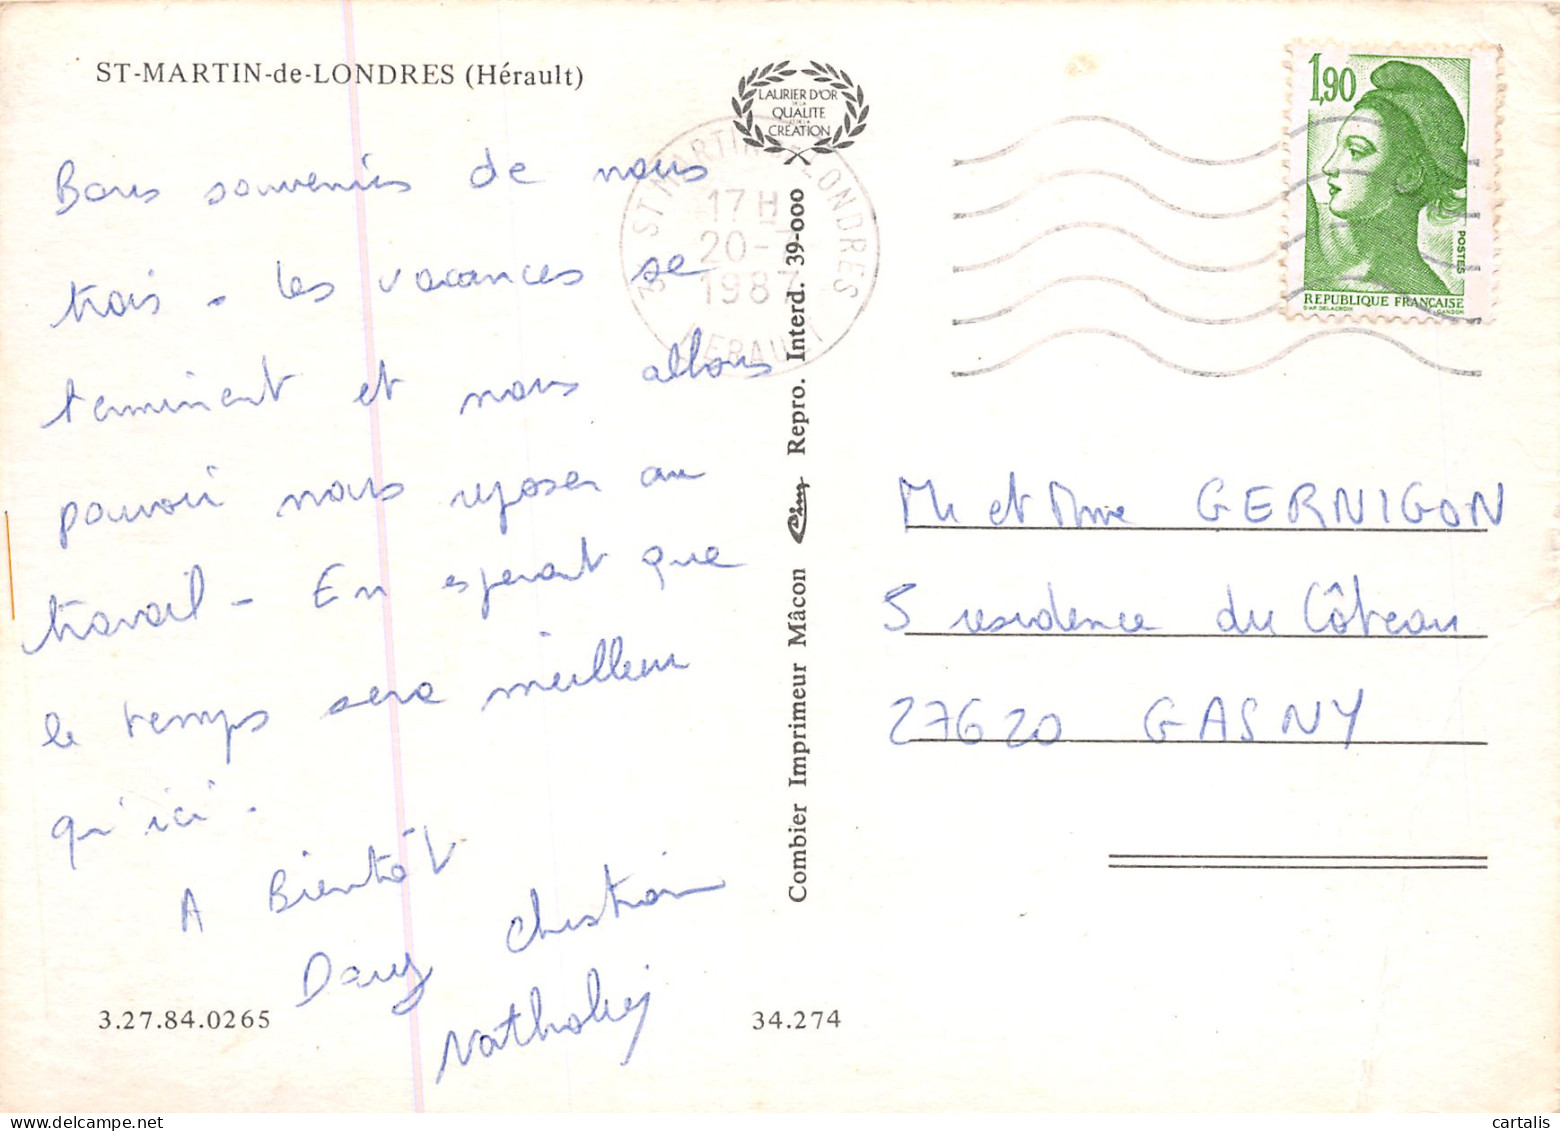 ST-MARTIN-de-LONDRES (Hérault)
LAURIER D'OR
DE LA
QUALITE
ET DE LA
CRÉATION
Bons souvenirs de nous
trois - Les vacances se
terminent et nous allons
pouvoir nous reposer au
travail - En esperant que
le temps sera meilleur
qu'ici.
A Bientôt
Dany Christian
Nathaly
3.27.84.0265
34.274
34 ST MARTIN DE LONDRES
17 H
20-7
1987
HERAULT
Combier Imprimeur Mâcon Cim Repro. Interd. 39-000
1,90
POSTES
REPUBLIQUE FRANÇAISE
D'AP. DELACROIX GANDON
Mr et Mme GERNIGON
5 residence du Côteau
27620 GASNY
cartalis